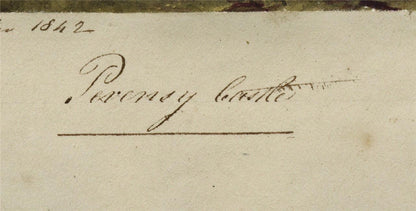 1842
Perensy Castle